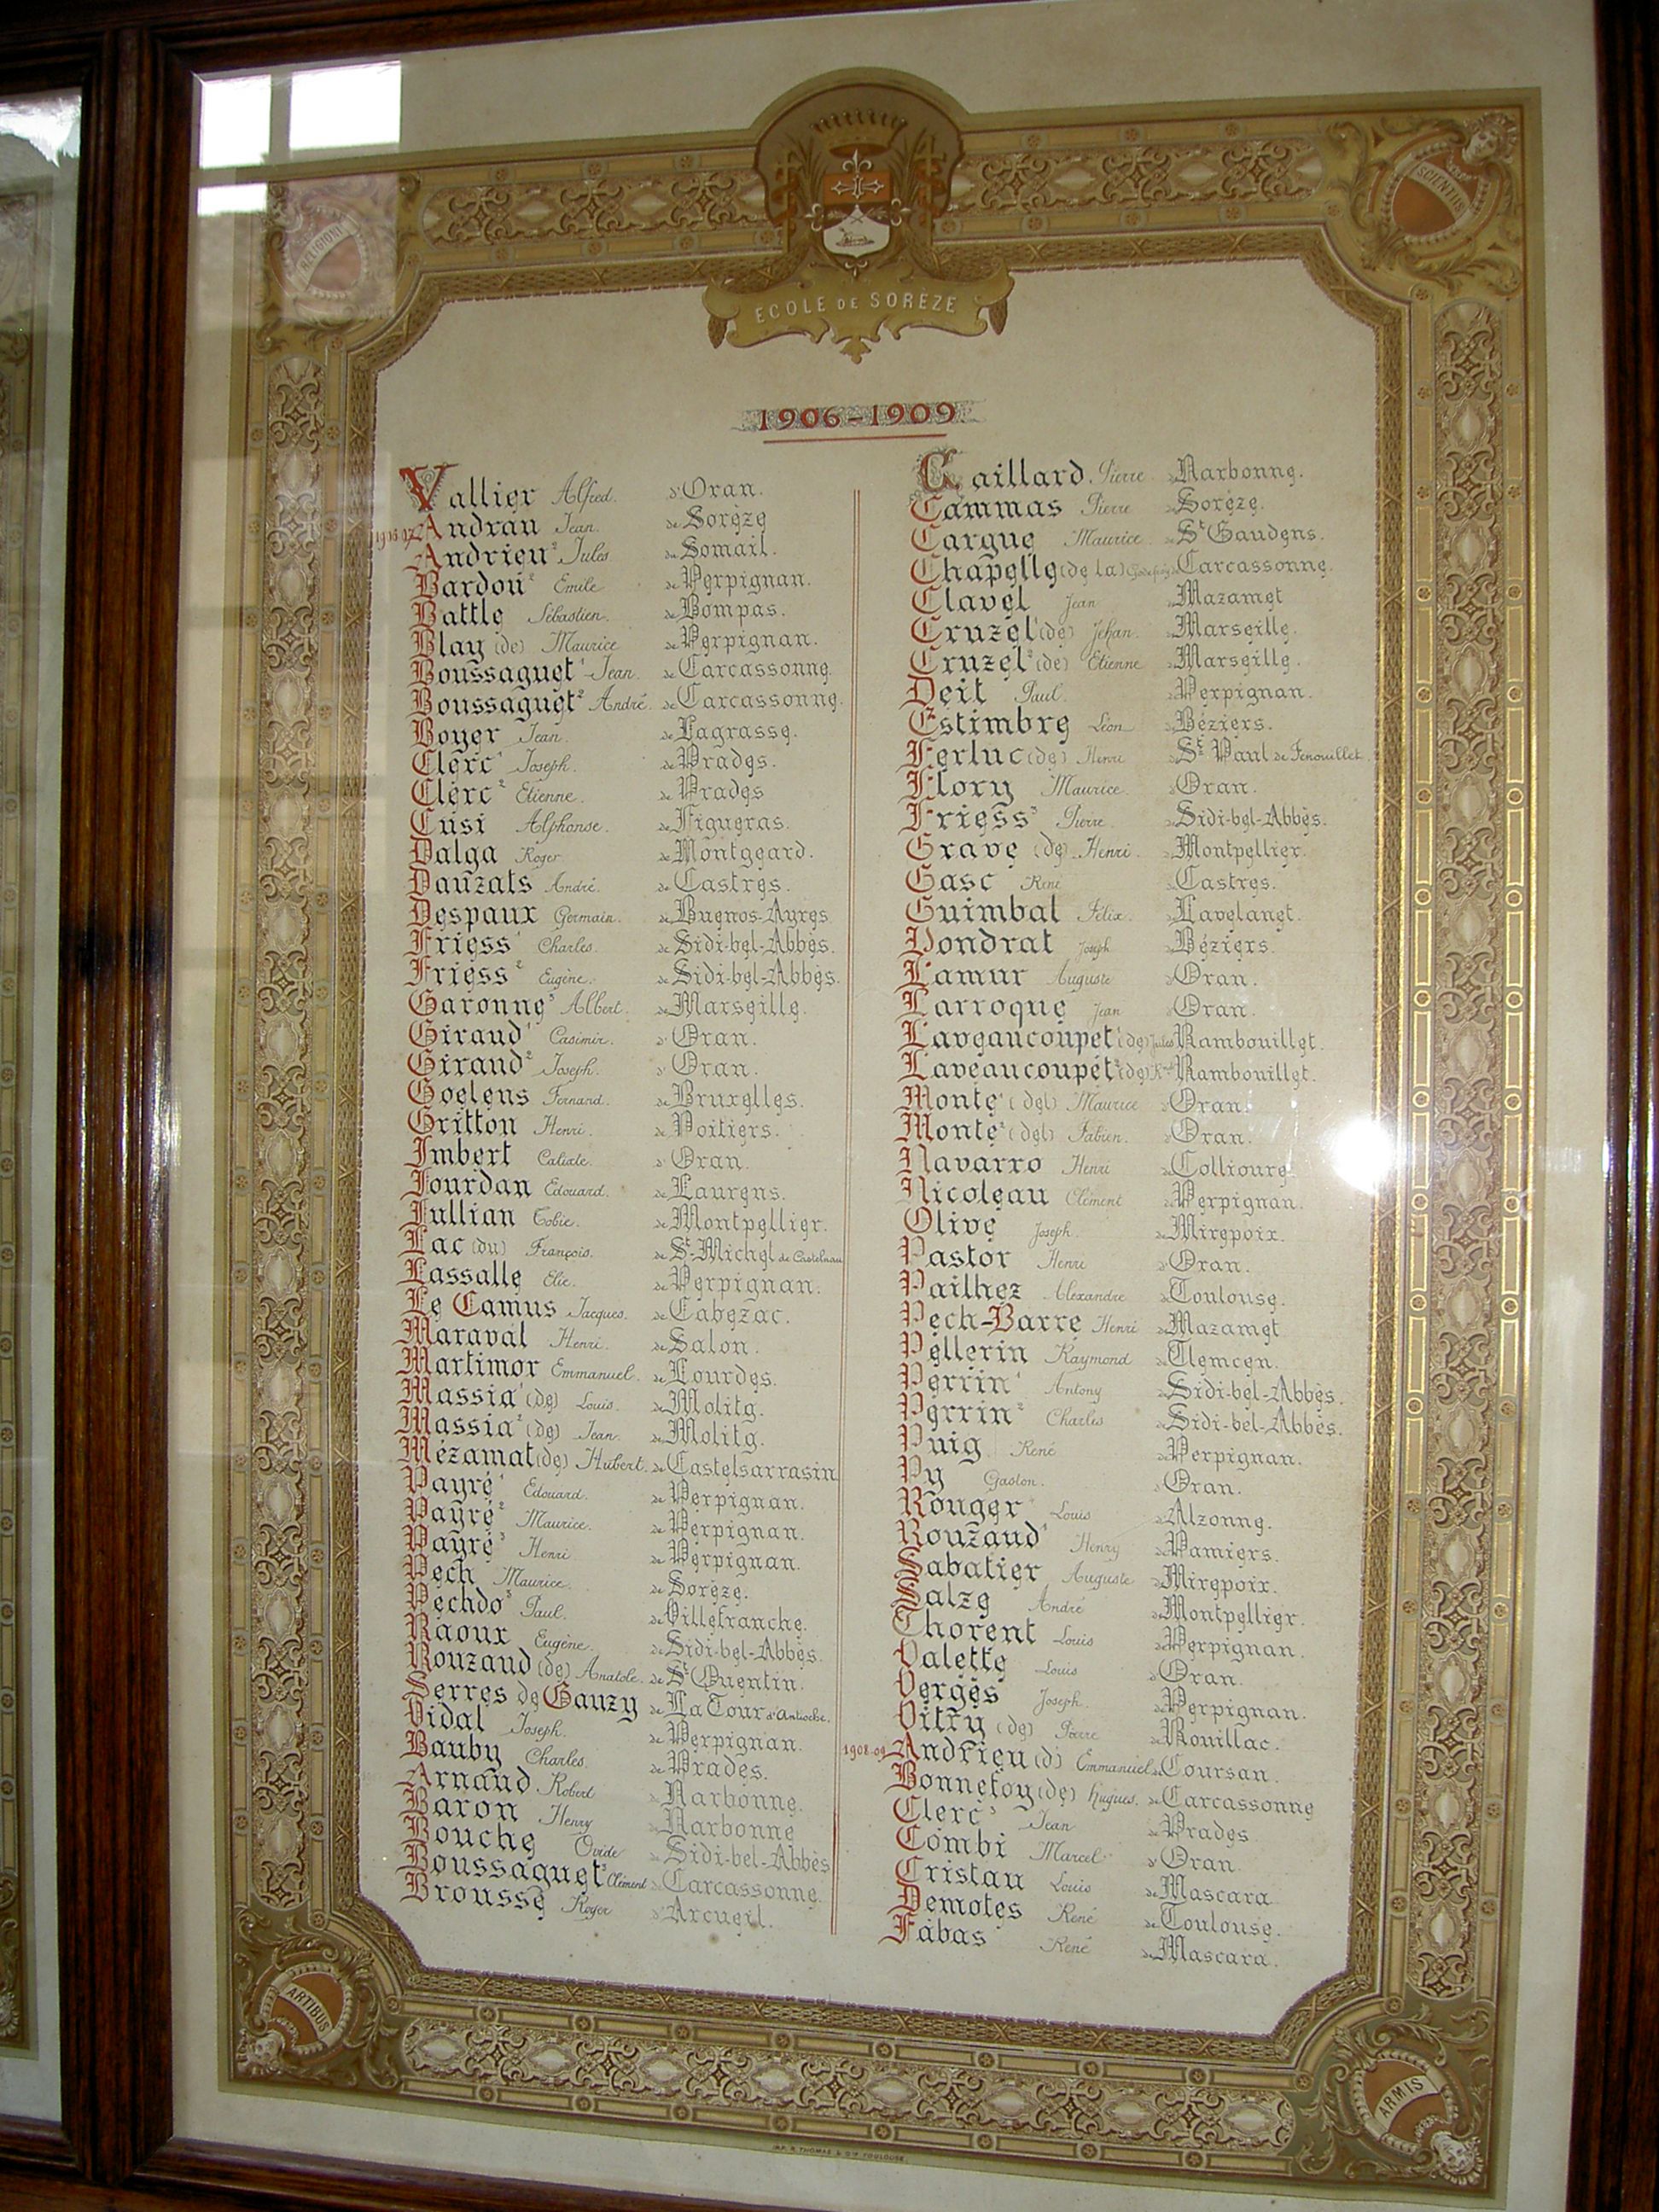 RELIGIONI
SCIENTIIS
ECOLE DE SORÈZE
1906-1909
Vallier Alfred. d'Oran.
Andrau Jean. de Sorèze
Andrieu² Jules de Somail.
Bardou² Emile de Perpignan.
Battle Sébastien. de Bompas.
Blay (de) Maurice de Perpignan.
Boussaguet¹ Jean. de Carcassonne.
Boussaguet² André. de Carcassonne.
Boyer Jean. de Lagrasse.
Clerc¹ Joseph. de Prades.
Clerc² Etienne. de Prades
Cusi Alphonse. de Figueras.
Dalga Roger de Montgeard.
Dauzats André. de Castres.
Despaux Germain. de Buenos-Ayres
Friess¹ Charles. de Sidi-bel-Abbès.
Friess² Eugène. de Sidi-bel-Abbès.
Garonne³ Albert. de Marseille.
Giraud¹ Casimir. d'Oran.
Giraud² Joseph. d'Oran.
Goelens Fernand. de Bruxelles.
Gritton Henri. de Poitiers.
Imbert Calixte. d'Oran.
Jourdan Edouard. de Laurens.
Jullian Tobie. de Montpellier.
Lac (du) François. de St-Michel de Castelnau
Lassalle Elie. de Perpignan.
Le Camus Jacques. de Cabezac.
Maraval Henri. de Salon.
Martimor Emmanuel. de Lourdes.
Massia¹ (de) Louis. de Molitg.
Massia² (de) Jean. de Molitg.
Mézamat (de) Hubert. de Castelsarrasin
Payré¹ Edouard. de Perpignan.
Payré² Maurice. de Perpignan.
Payré³ Henri de Perpignan.
Pech Maurice. de Sorèze.
Pechdo³ Paul. de Villefranche.
Raoux Eugène. de Sidi-bel-Abbès.
Rouzaud (de) Anatole. de St Quentin.
Serres de Gauzy de La Tour d'Antioche.
Vidal Joseph. de Perpignan.
Bauby Charles. de Prades.
Arnaud Robert Narbonne.
Baron Henry Narbonne
Bouche Ovide Sidi-bel-Abbès
Boussaguet³ Clément Carcassonne.
Brousse Roger d'Arcueil.
Caillard Pierre Narbonne.
Cammas Pierre Sorèze.
Cargue Maurice de St Gaudens.
Chapelle (de la) Carcassonne.
Clavel Jean Mazamet
Cruzel¹ (de) Jehan. Marseille.
Cruzel² (de) Etienne Marseille.
Deit Paul. Perpignan.
Estimbre Léon Béziers.
Ferluc (de) Henri St Paul de Fenouillet.
Flory Maurice. Oran.
Friess³ Pierre. Sidi-bel-Abbès.
Grave (de) Henri. Montpellier.
Gasc René Castres.
Guimbal Félix. Lavelanet.
Vondrat Joseph Béziers.
Lamur Auguste Oran.
Larroque Jean Oran.
Laveaucoupet¹ (de) Jules Rambouillet.
Laveaucoupet² (de) Rambouillet.
Monte¹ (del) Maurice Oran.
Monte² (del) Fabien. Oran.
Navarro Henri de Collioure
Nicoleau Clément de Perpignan.
Olive Joseph. de Mirepoix.
Pastor Henri d'Oran.
Pailhez Alexandre de Toulouse.
Pech-Barre Henri de Mazamet
Pellerin Raymond de Tlemcen.
Perrin¹ Antony de Sidi-bel-Abbès.
Perrin² Charles de Sidi-bel-Abbès.
Puig René de Perpignan.
Py Gaston. d'Oran.
Rouger Louis d'Alzonne.
Rouzaud¹ Henry de Pamiers.
Sabatier Auguste de Mirepoix.
Salze André de Montpellier.
Thorent Louis de Perpignan.
Valette Louis d'Oran.
Vergès Joseph. de Perpignan.
Vitry (de) Pierre de Rouillac.
1908-09 Andrieu (d') Emmanuel de Coursan.
Bonnefoy (de) Hugues. de Carcassonne
Clerc³ Jean de Prades
Combi Marcel d'Oran.
Cristau Louis de Mascara
Demotes René de Toulouse.
Fabas René de Mascara.
ARTIBUS
ARMIS
IMP. R. THOMAS & Cie TOULOUSE.